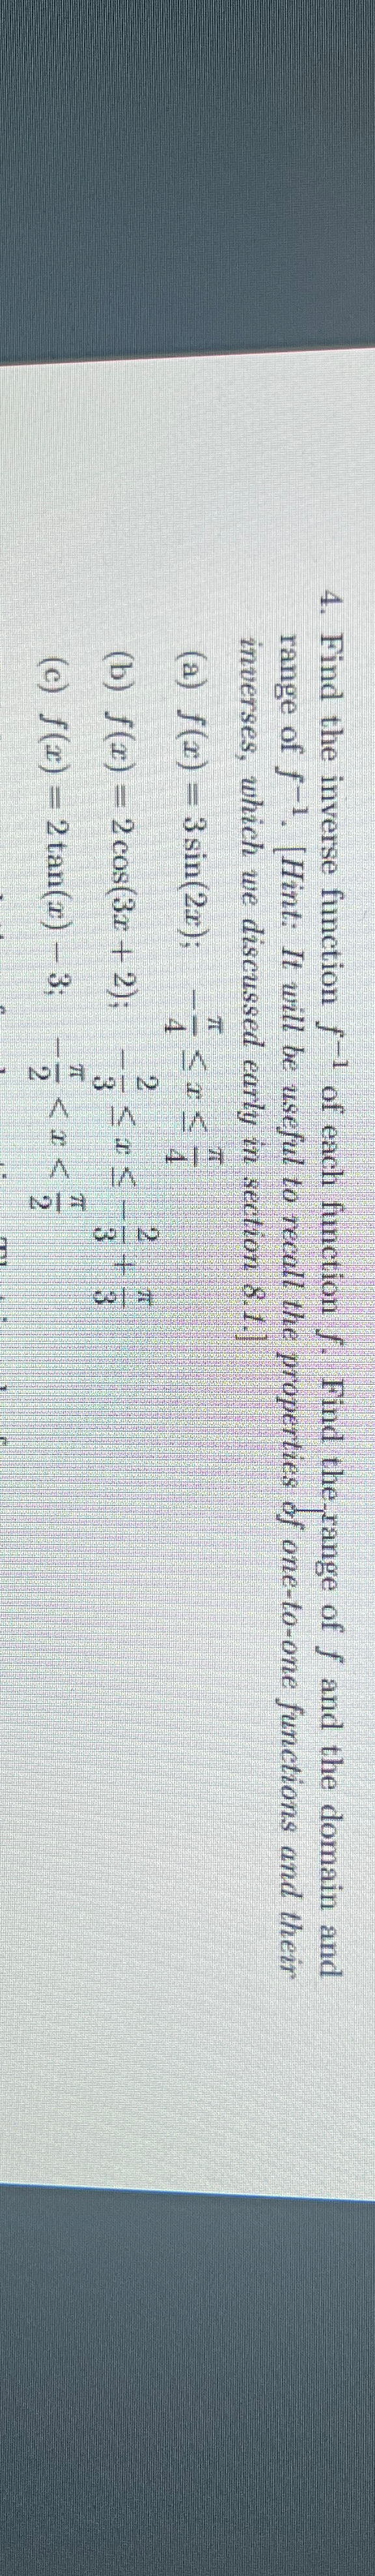 4. Find the inverse function f⁻¹ of each function f. Find the range of f and the domain and
range of f⁻¹. [Hint: It will be useful to recall the properties of one-to-one functions and their
inverses, which we discussed early in section 8.1.]
(a) f(x) = 3 sin(2x); −π/4 ≤ x ≤ π/4
(b) f(x) = 2 cos(3x + 2); −2/3 ≤ x ≤ −2/3 + π/3
(c) f(x) = 2 tan(x) − 3; −π/2 < x < π/2